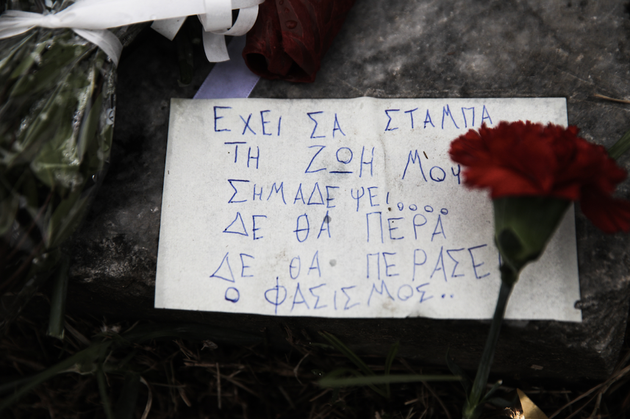 ΕΧΕΙ ΣΑ ΣΤΑΜΠΑ
ΤΗ ΖΩΗ ΜΟΥ
ΣΗΜΑΔΕΨΕΙ.....
ΔΕ ΘΑ ΠΕΡΑ
ΔΕ ΘΑ ΠΕΡΑΣΕΙ
Ο ΦΑΣΙΣΜΟΣ..